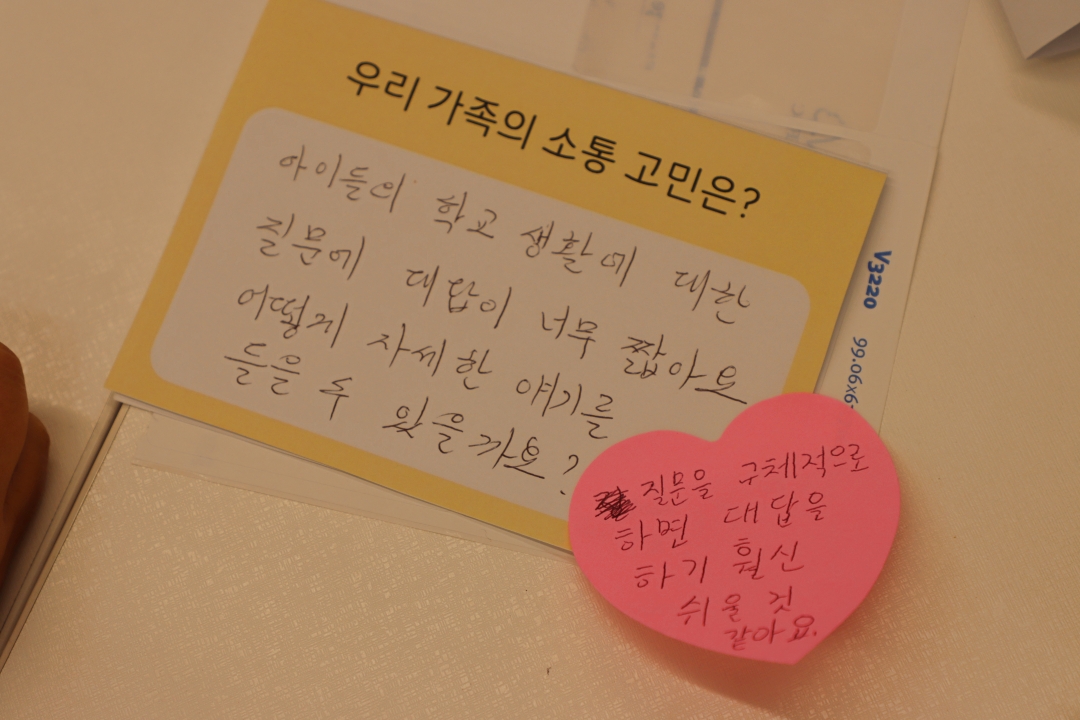 우리 가족의 소통 고민은?
아이들의 학교 생활에 대한
질문에 대답이 너무 짧아요
어떻게 자세한 얘기를
들을 수 있을까요?
질문을 구체적으로
하면 대답을
하기 훨신
쉬울 것
같아요.
V3220 99.06x6